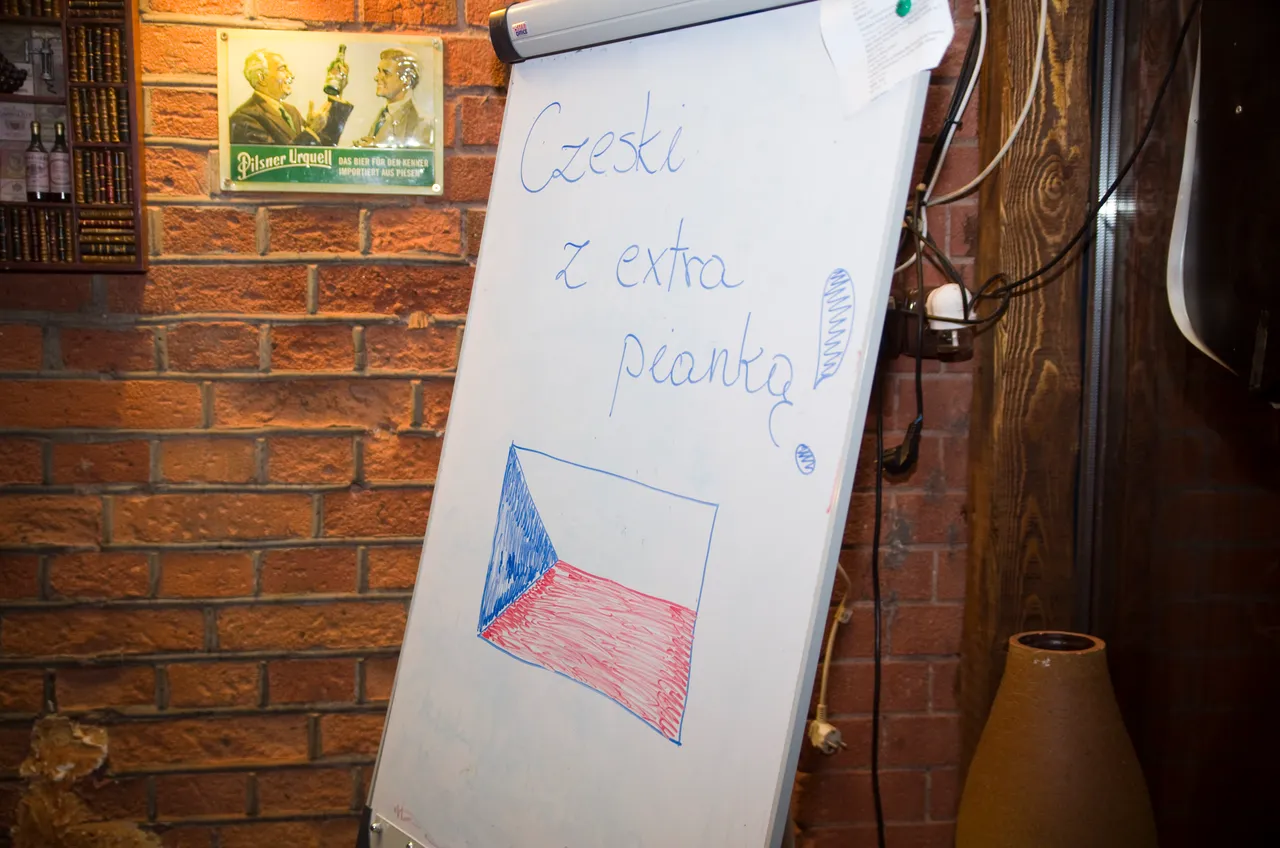 Pilsner Urquell
DAS BIER FÜR DEN KENNER
IMPORTIERT AUS PILSEN
Czeski
z extra
pianką!